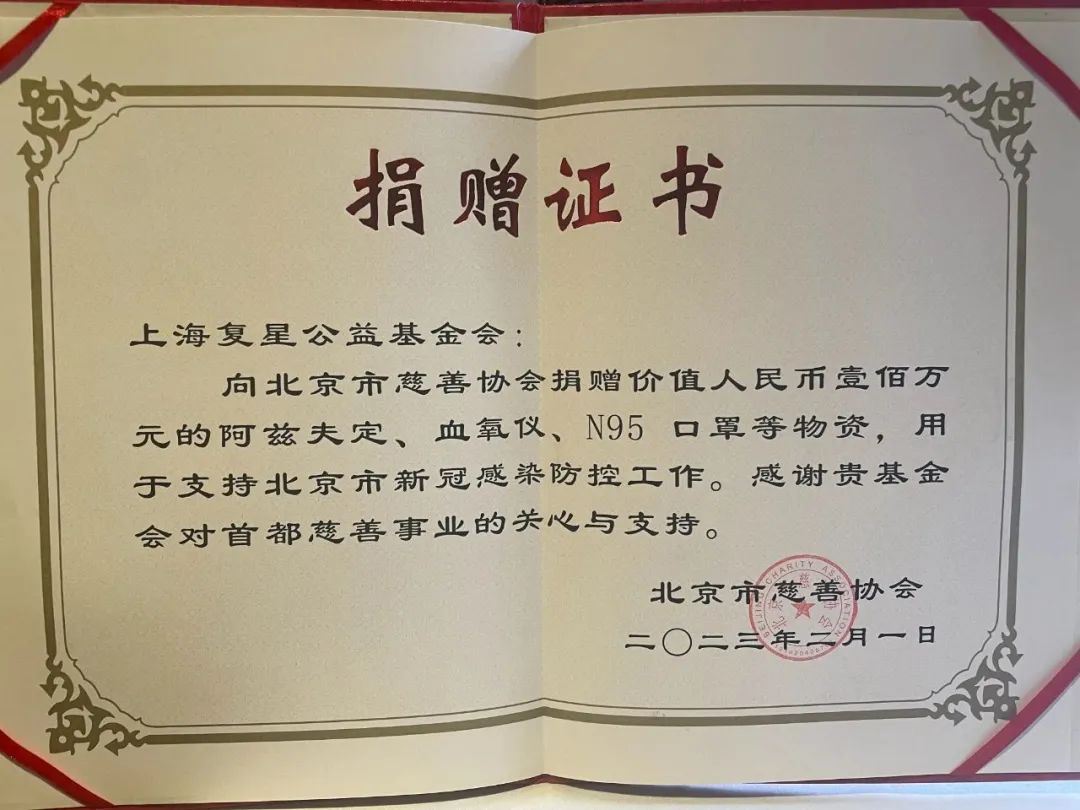 捐赠证书
上海复星公益基金会：
向北京市慈善协会捐赠价值人民币壹佰万
元的阿兹夫定、血氧仪、N95 口罩等物资，用
于支持北京市新冠感染防控工作。感谢贵基金
会对首都慈善事业的关心与支持。
北京市慈善协会
二〇二三年二月一日
BEIJING CHARITY ASSOCIATION
北京慈善协会